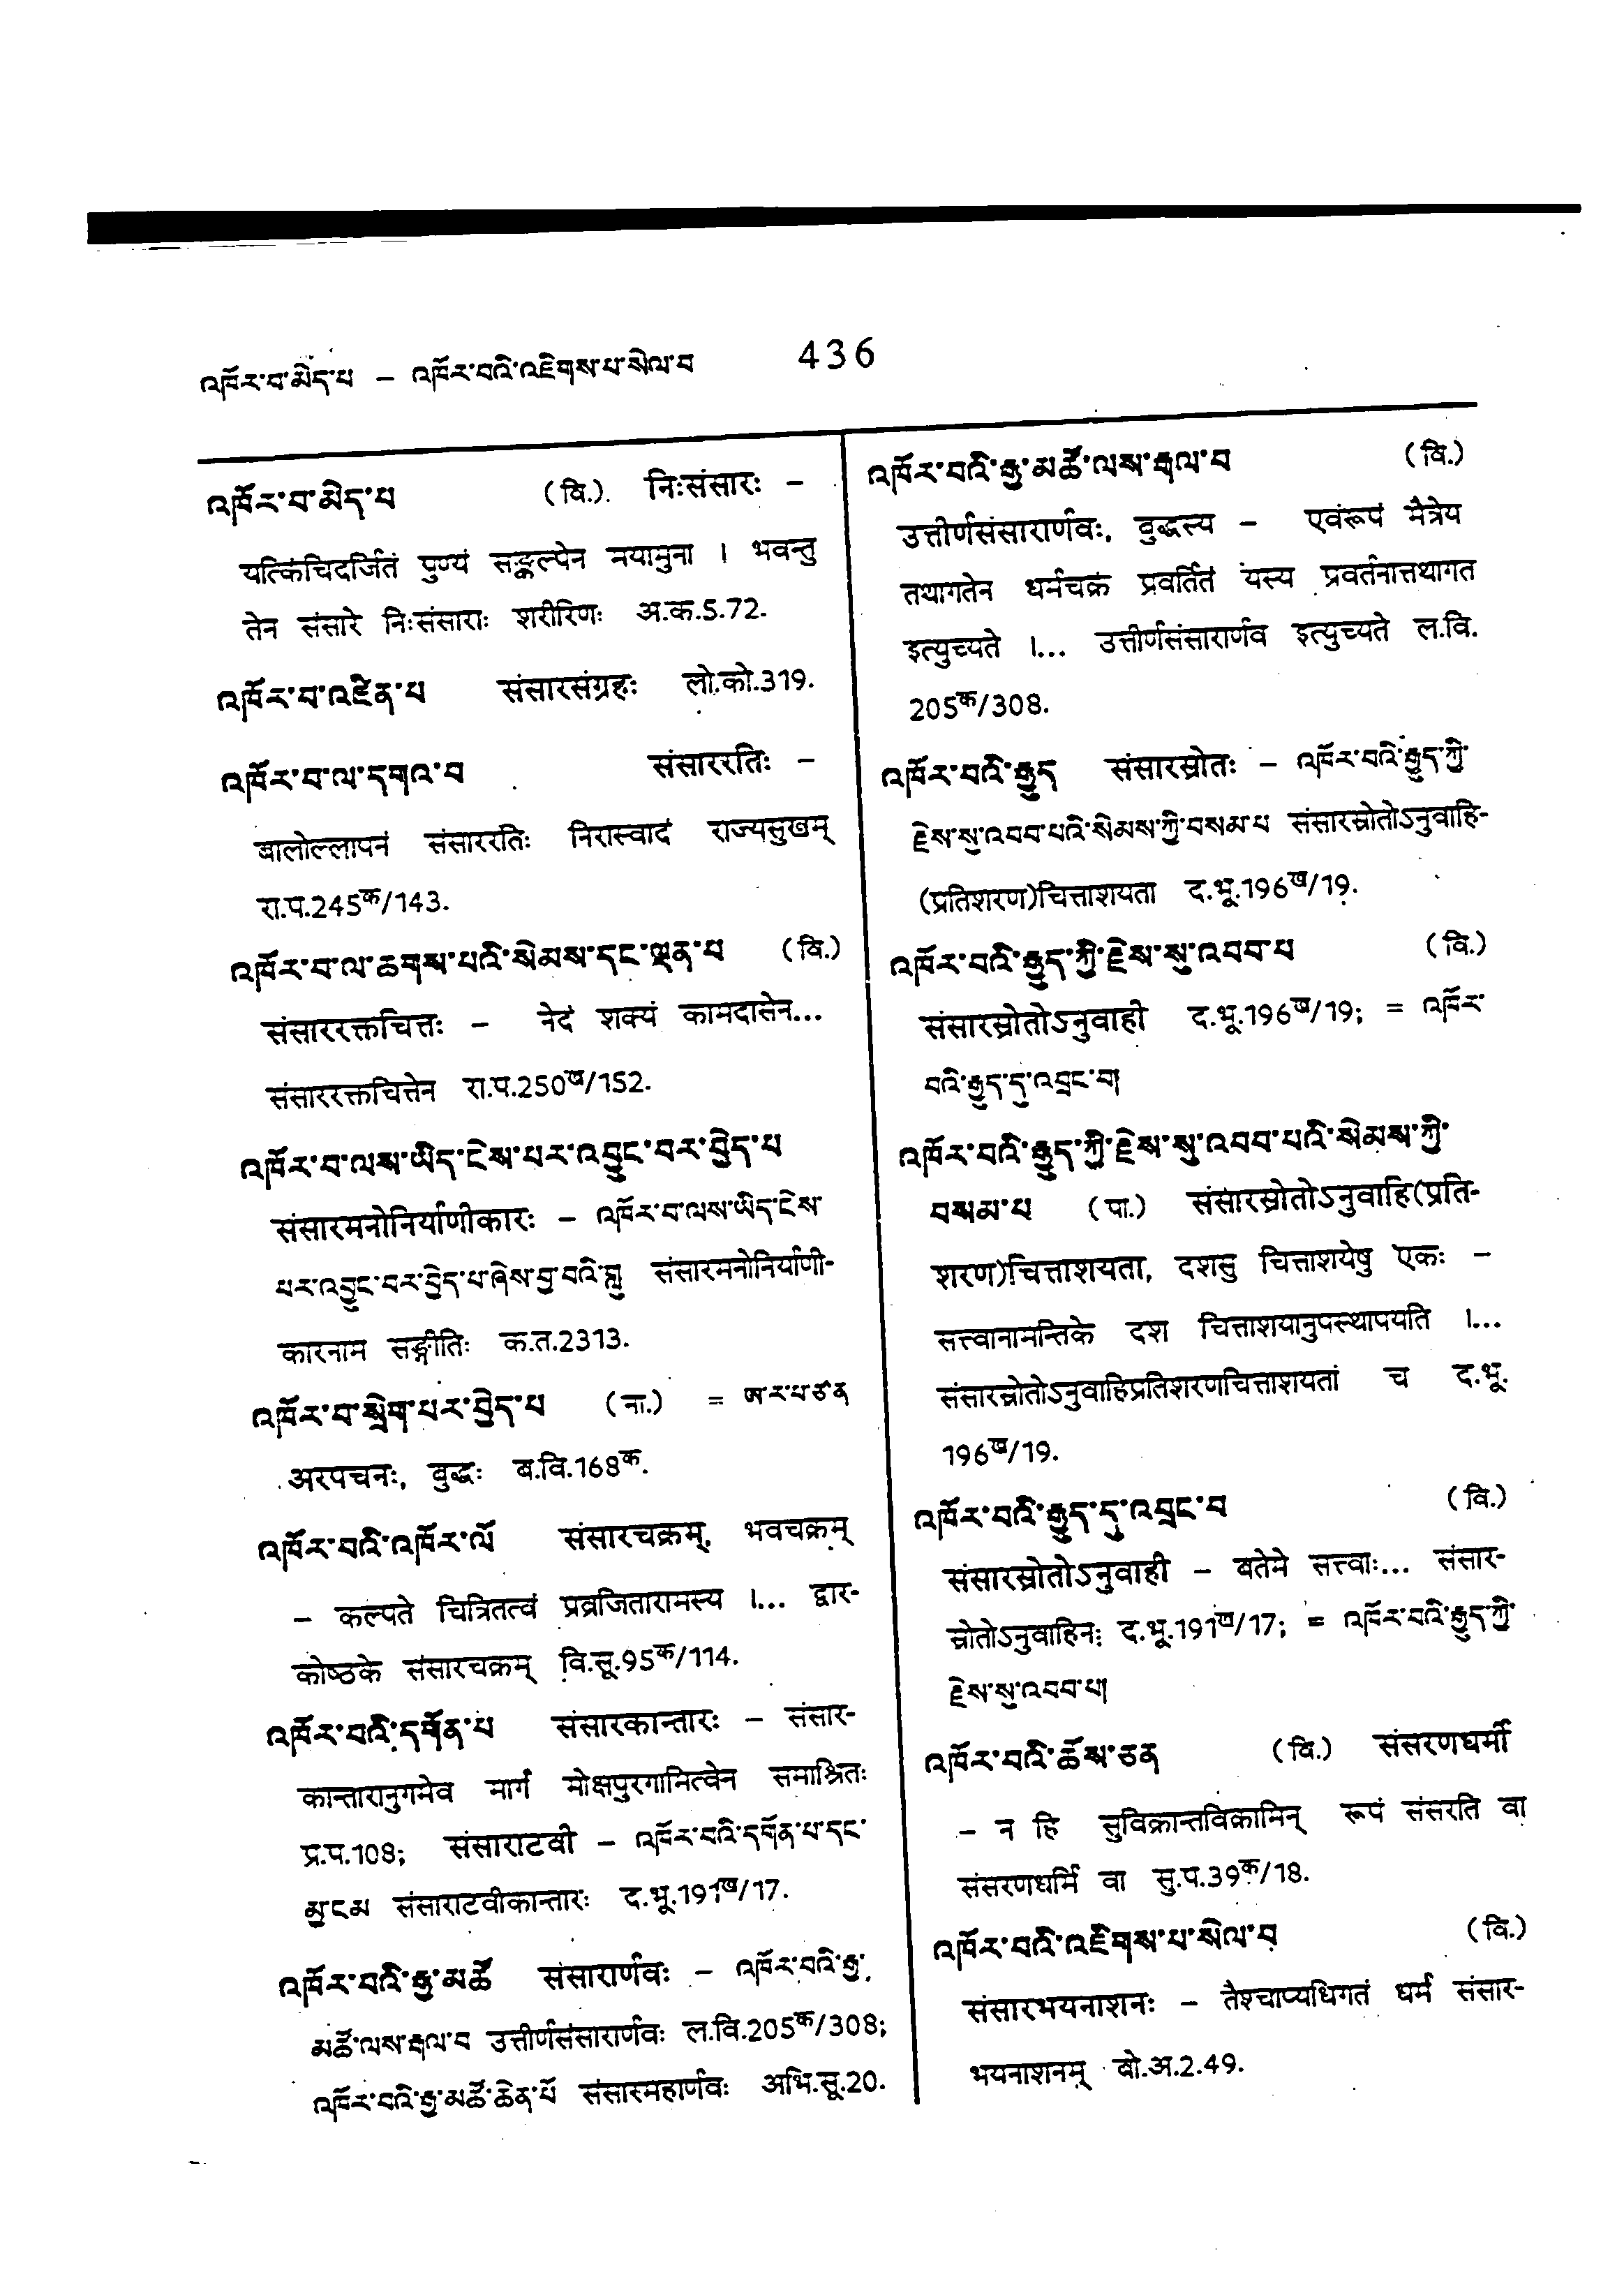 འཁོར་བ་མེད་པ – འཁོར་བའི་འཇིགས་པ་སེལ་བ 436
འཁོར་བ་མེད་པ (वि.) निःसंसारः –
यत्किंचिदर्जितं पुण्यं सङ्कल्पेन मयामुना । भवन्तु
तेन संसारे निःसंसाराः शरीरिणः अ.क.5.72.
འཁོར་བ་འཛིན་པ संसारसंग्रहः लो.को.319.
འཁོར་བ་ལ་དགའ་བ संसाररतिः –
बालोल्लापनं संसाररतिः निरास्वादं राज्यसुखम्
रा.प.245क/143.
འཁོར་བ་ལ་ཆགས་པའི་སེམས་དང་ལྡན་པ (वि.)
संसाररक्तचित्तः – नेदं शक्यं कामदासेन...
संसाररक्तचित्तेन रा.प.250ख/152.
འཁོར་བ་ལས་ཡིད་ངེས་པར་འབྱུང་བར་བྱེད་པ
संसारमनोनिर्याणीकारः – འཁོར་བ་ལས་ཡིད་ངེས་
པར་འབྱུང་བར་བྱེད་པ་ཞེས་བྱ་བའི་གླུ संसारमनोनिर्याणी-
कारनाम सङ्गीतिः क.त.2313.
འཁོར་བ་སྲེག་པར་བྱེད་པ (ना.) = ཨ་ར་པ་ཙ་ན
अरपचनः, बुद्धः ब.वि.168क.
འཁོར་བའི་འཁོར་ལོ संसारचक्रम्, भवचक्रम्
– कल्पते चित्रितत्वं प्रव्रजितारामस्य ।... द्वार-
कोष्ठके संसारचक्रम् वि.सू.95क/114.
འཁོར་བའི་དགོན་པ संसारकान्तारः – संसार-
कान्तारानुगमेव मार्गं मोक्षपुरगामित्वेन समाश्रितः
प्र.प.108; संसाराटवी – འཁོར་བའི་དགོན་པ་དང་
མྱ་ངམ संसाराटवीकान्तारः द.भू.191ख/17.
འཁོར་བའི་རྒྱ་མཚོ संसारार्णवः – འཁོར་བའི་རྒྱ་
མཚོ་ལས་རྒལ་བ उत्तीर्णसंसारार्णवः ल.वि.205क/308;
འཁོར་བའི་རྒྱ་མཚོ་ཆེན་པོ संसारमहार्णवः अभि.सू.20.
འཁོར་བའི་རྒྱ་མཚོ་ལས་རྒལ་བ (वि.)
उत्तीर्णसंसारार्णवः, बुद्धस्य – एवंरूपं मैत्रेय
तथागतेन धर्मचक्रं प्रवर्तितं यस्य प्रवर्तनात्तथागत
इत्युच्यते ।... उत्तीर्णसंसारार्णव इत्युच्यते ल.वि.
205क/308.
འཁོར་བའི་རྒྱུད संसारस्रोतः – འཁོར་བའི་རྒྱུད་ཀྱི་
རྗེས་སུ་འབབ་པའི་སེམས་ཀྱི་བསམ་པ संसारस्रोतोऽनुवाहि-
(प्रतिशरण)चित्ताशयता द.भू.196ख/19.
འཁོར་བའི་རྒྱུད་ཀྱི་རྗེས་སུ་འབབ་པ (वि.)
संसारस्रोतोऽनुवाही द.भू.196ख/19; = འཁོར་
བའི་རྒྱུད་དུ་འབྲང་བ།
འཁོར་བའི་རྒྱུད་ཀྱི་རྗེས་སུ་འབབ་པའི་སེམས་ཀྱི་
བསམ་པ (पा.) संसारस्रोतोऽनुवाहि(प्रति-
शरण)चित्ताशयता, दशसु चित्ताशयेषु एकः –
सत्त्वानामन्तिके दश चित्ताशयानुपस्थापयति ।...
संसारस्रोतोऽनुवाहिप्रतिशरणचित्ताशयतां च द.भू.
196ख/19.
འཁོར་བའི་རྒྱུད་དུ་འབྲང་བ (वि.)
संसारस्रोतोऽनुवाही – बतेमे सत्त्वाः... संसार-
स्रोतोऽनुवाहिनः द.भू.191ख/17; = འཁོར་བའི་རྒྱུད་ཀྱི་
རྗེས་སུ་འབབ་པ།
འཁོར་བའི་ཆོས་ཅན (वि.) संसरणधर्मी
– न हि सुविक्रान्तविक्रामिन् रूपं संसरति वा
संसरणधर्मि वा सु.प.39क/18.
འཁོར་བའི་འཇིགས་པ་སེལ་བ (वि.)
संसारभयनाशनः – तैश्चाप्यधिगतं धर्मं संसार-
भयनाशनम् बो.अ.2.49.